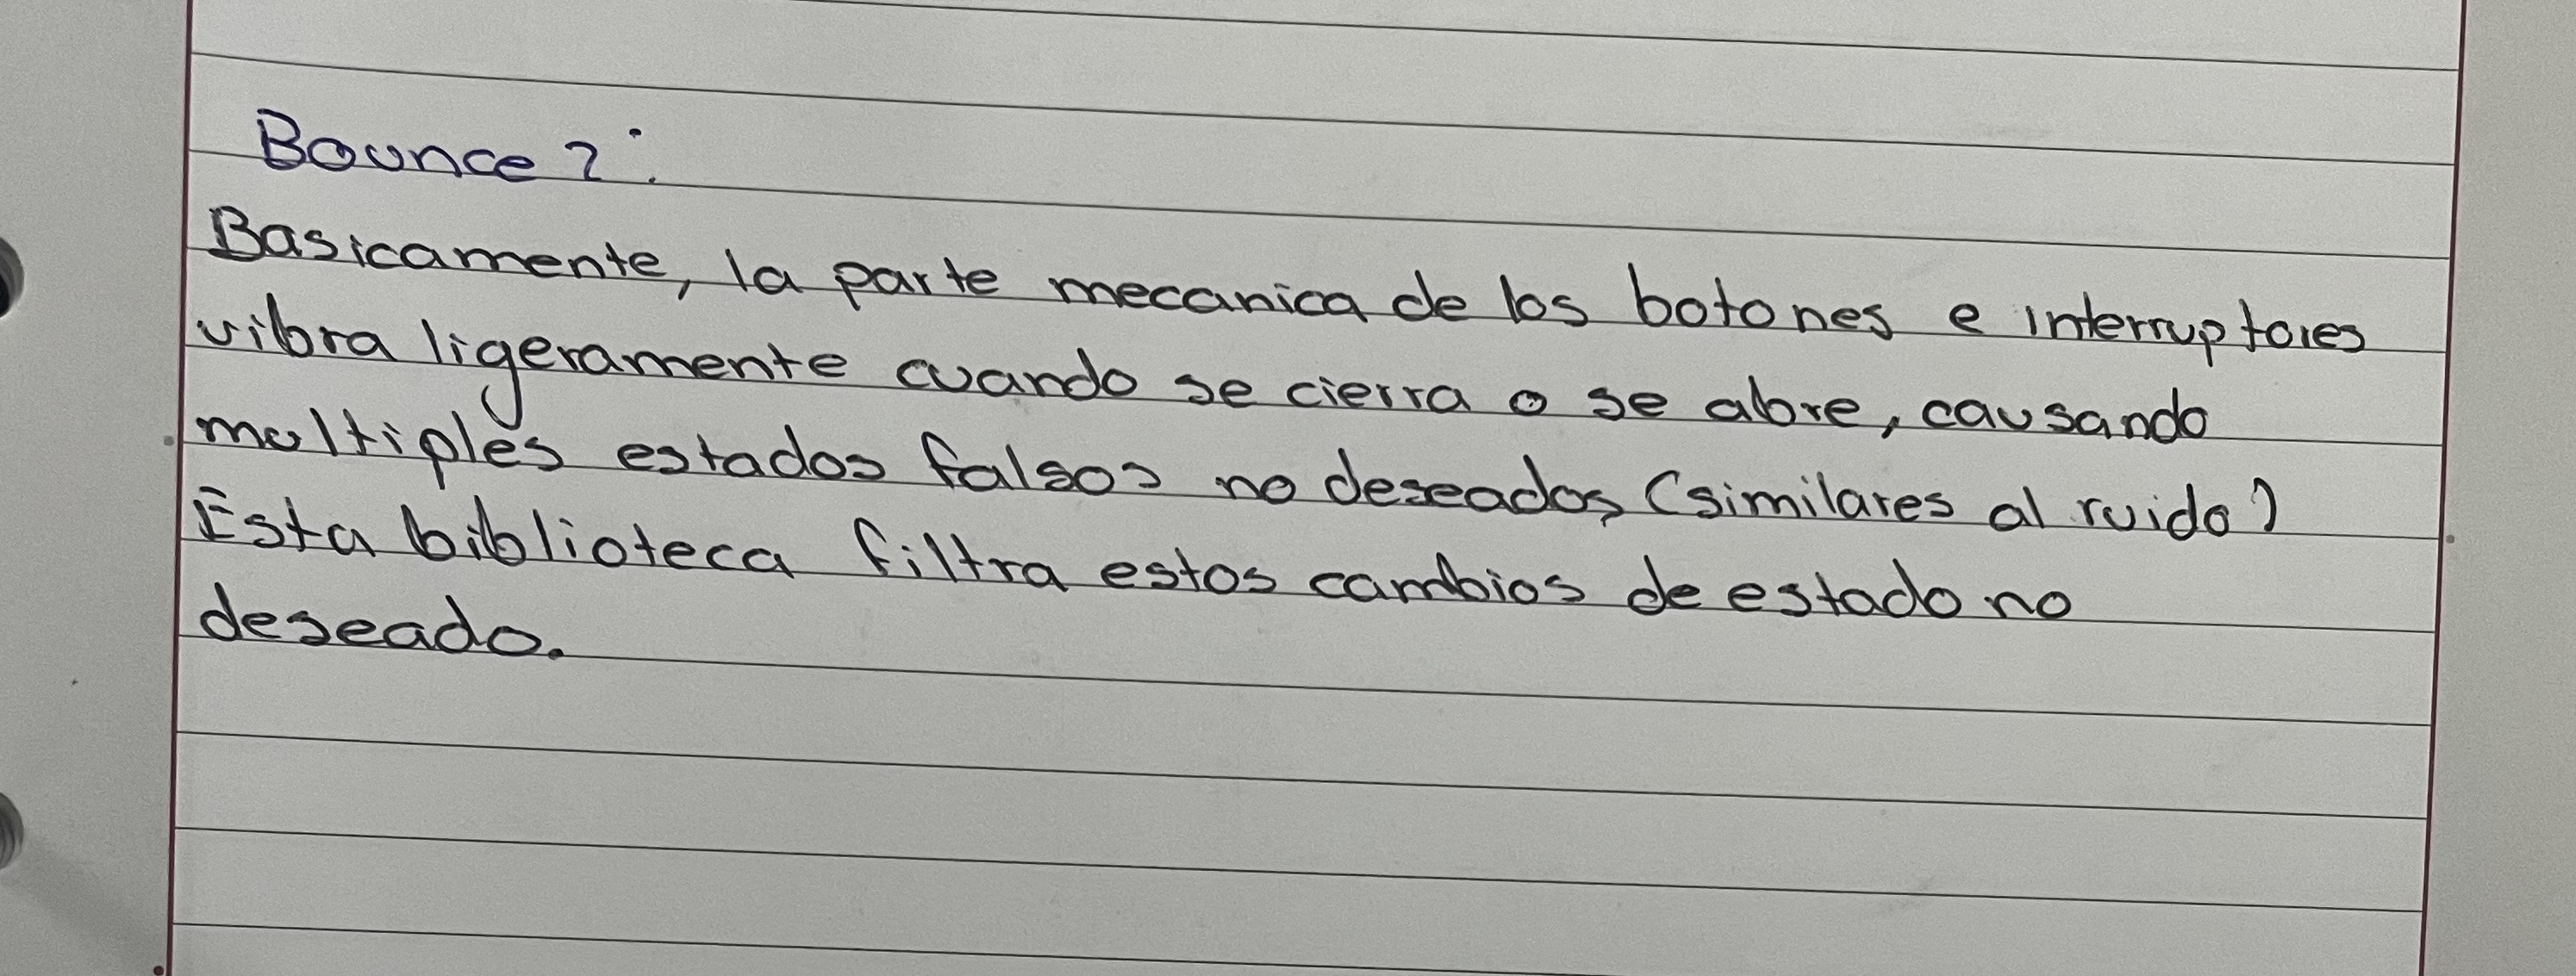 Bounce 2:
Basicamente, la parte mecanica de los botones e interruptores
vibra ligeramente cuando se cierra o se abre, causando
multiples estados falsos no deseados (similares al ruido)
Esta biblioteca filtra estos cambios de estado no
deseado.